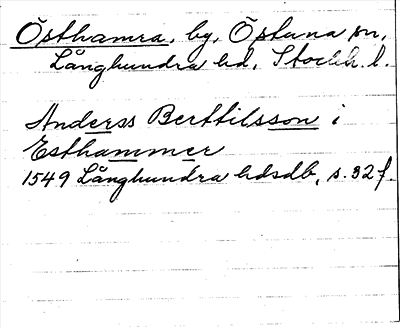 Östhamra, by, Östuna sn,
Långhundra hd, Stockh. l.
Anderss Berttilsson i
Esthammer
1549 Långhundra hdsdb, s. 32 f.